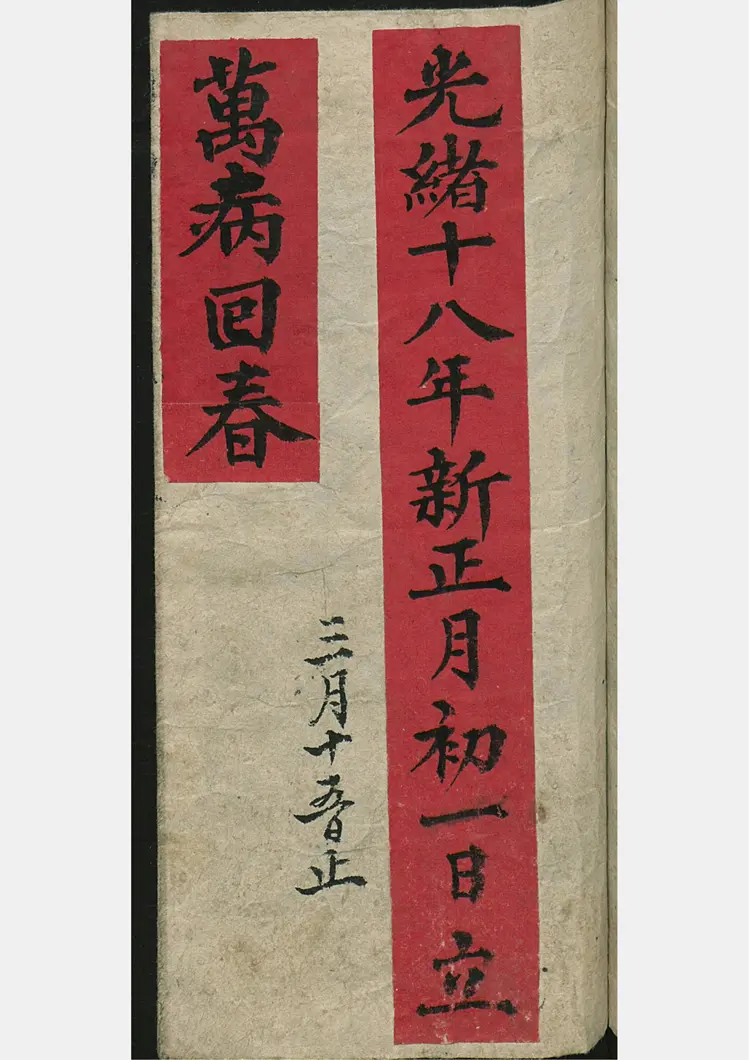 光緒十八年新正月初一日立
三月十五日止
萬病回春